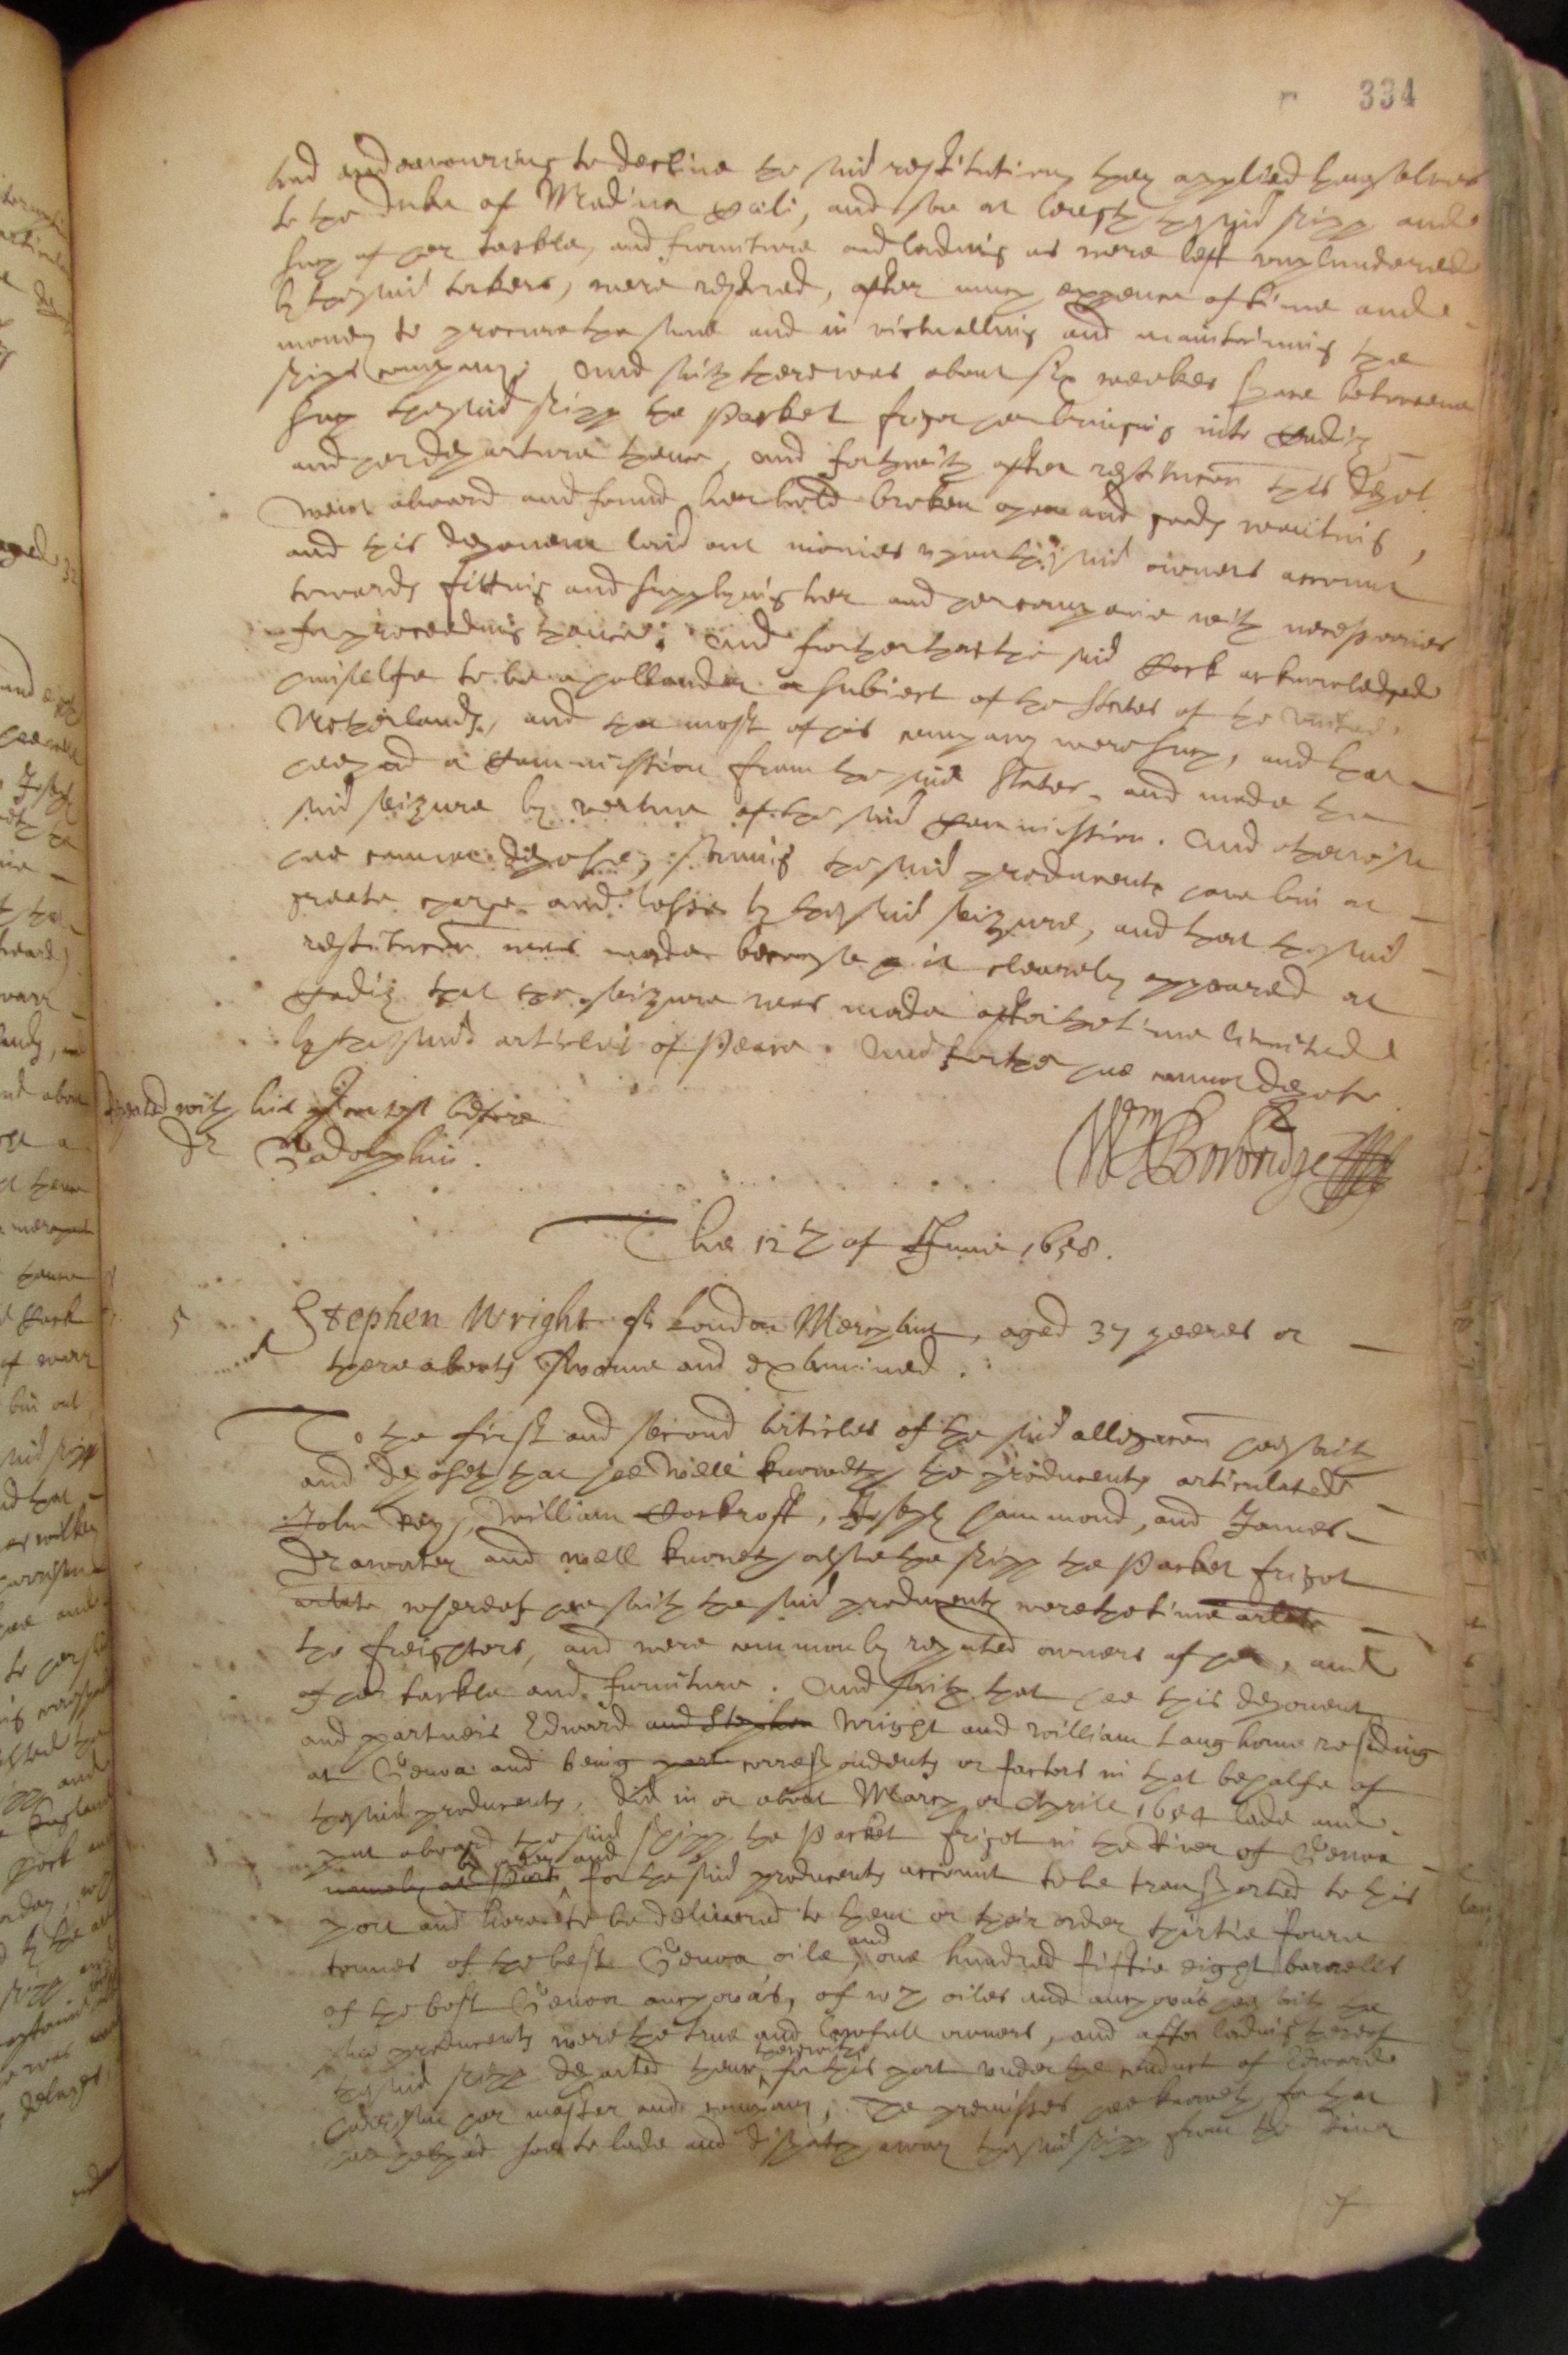 334
and endeavouring to decline the said restitution, they applied themselves
to the Duke of Medina Celi, and soe at length the said shipp and
such of her tackle, and furniture and lading as were left unplundered
by the said takers, were restored, after much expence of time and
money to procure the same and in victualling and maintaining the
ships company; And saith there was about six weekes space betweene
such the said shipp the Packet frigot her bringing into Cadiz
and her departure thence, and forthwith after restitucon this depot
went aboard and found her hold broken open and goods wanting,
and this deponent laid out monies upon the said owners account
towards fitting and supplying her and her companie with necessaries
for proceeding thence; And further that the said Cock acknowledged
himselfe to be a hollander a subject of the States of the United
Netherlands, and the most of his company were such, and that
hee had a Commission from the said States, and made the
said seizure by vertue of the said Commission. And otherwise
hee cannot depose, saving the said producents have bin at
greate charge and losse by the said seizure, and that the said
restitucon was made because it clearely appeared at
Cadiz that the seizure was made after the time limitted
by the said articles of Peace. And further hee cannot depose.
Repeated with his Con rogt before
dr Godolphin.
Wm Borbridge
The 12th of June 1658.
5
Stephen Wright of London Merchant, aged 37 yeeres or
thereabouts sworne and examined.
To the first and second articles of the said allegacon hee saith
and deposeth that hee well knoweth the producents articulated
John , William Cockroft, Joseph Hammond, and James
Drawater and well knoweth alsoe the shipp the Packet frigot
arlate whereof hee saith the said producents were the time arlate
the freighters, and were commonly reputed owners of her, and
of her tackle and furniture. And saith that hee this deponent
and partners Edward and Stephen Wright and William Langhorne residing
at Genoa and being part correspondents or factors in that behalfe of
the said producents, did in or about March or Aprill 1654 lade and
put aboard the said shipp the Packet frigot in the River of Genoa
namely at Port by order and for the said producents account to be transported to this
port and here to be delivered to them or their order thirtie foure
tonnes of the best Genoa oile, and one hundred fiftie eight barrells
of the best Genoa anchovas, of wch oiles and anchovas hee saith the
said producents were the true and lawfull owners, and after lading thereof
the said shipp departed thence therewith for this port under the conduct of Edward
 her master and company, The premisses hee knoweth, for that
hee helped soe to lade and dispatch away the said shipp from the River
of